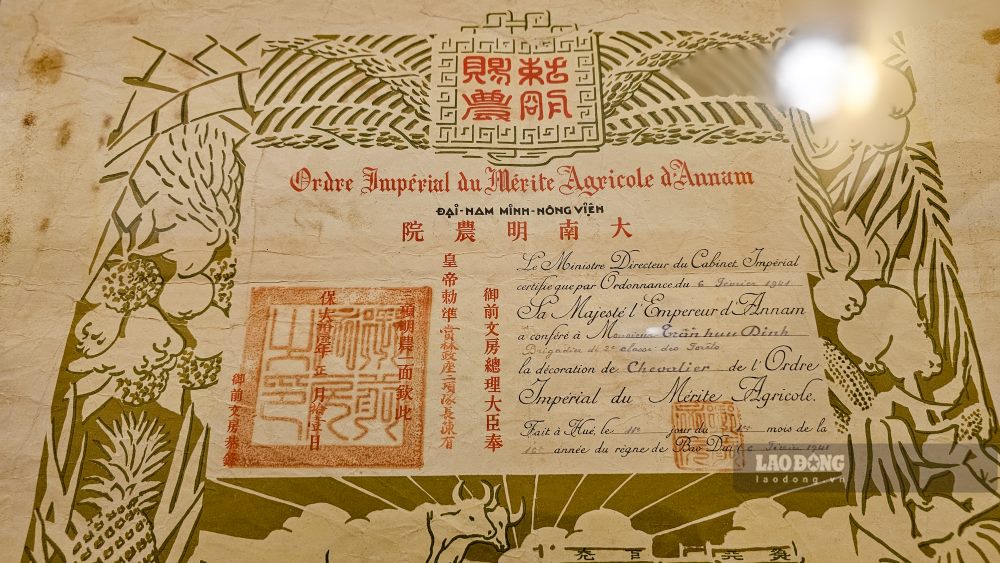 敕賜
農
Ordre Impérial du Mérite Agricole d'Annam
ĐẠI-NAM MINH-NÔNG VIỆN
院農明南大
御前文房總理大臣奉
皇帝勅準賞林政座二項隊長陳有
三項明農一面欽此
保大拾年正月拾壹日
御前文房恭錄
Le Ministre Directeur du Cabinet Impérial
certifie que par Ordonnance du 6 Février 1941
Sa Majesté l'Empereur d'Annam
a conféré à Monsieur Trần huu Dinh
Brigadier de 2e classe des Forêts
la décoration de Chevalier de l'Ordre
Impérial du Mérite Agricole.
Fait à Hué, le 11e jour du 1er mois de la
16e année du règne de Bao Dai 6 Février 1941
LAO ĐỘNG
laodong.vn